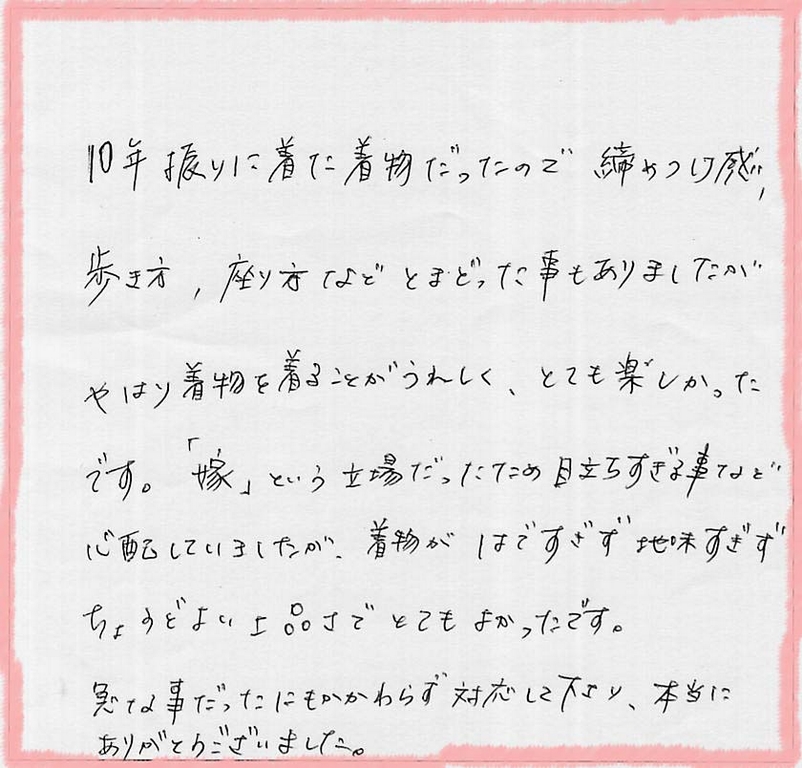 10年振りに着た着物だったので 締めつけ感,
歩き方, 座り方など とまどった事もありましたが
やはり着物を着ることがうれしく、とても楽しかった
です。「嫁」という立場だったため目立ちすぎる事など
心配していましたが、着物が はですぎず 地味すぎず
ちょうどよい上品さで とてもよかったです。
急な事だったにもかかわらず対応して下さり、本当に
ありがとうございました。